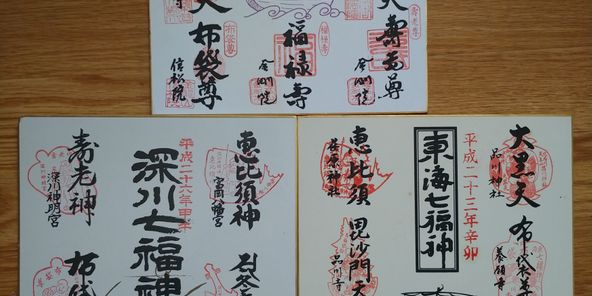 大寿老尊
寿老尊
金剛院
福禄寿
福禄寿
金剛院
大布袋尊
布袋尊
信松院
恵比須神
富岡八幡宮
平成二十六年甲午
深川七福神
寿老神
深川神明宮
布袋
大黒天
品川神社
布袋尊
養願寺
平成二十三年辛卯
東海七福神
恵比須
荏原神社
毘沙門天
品川寺